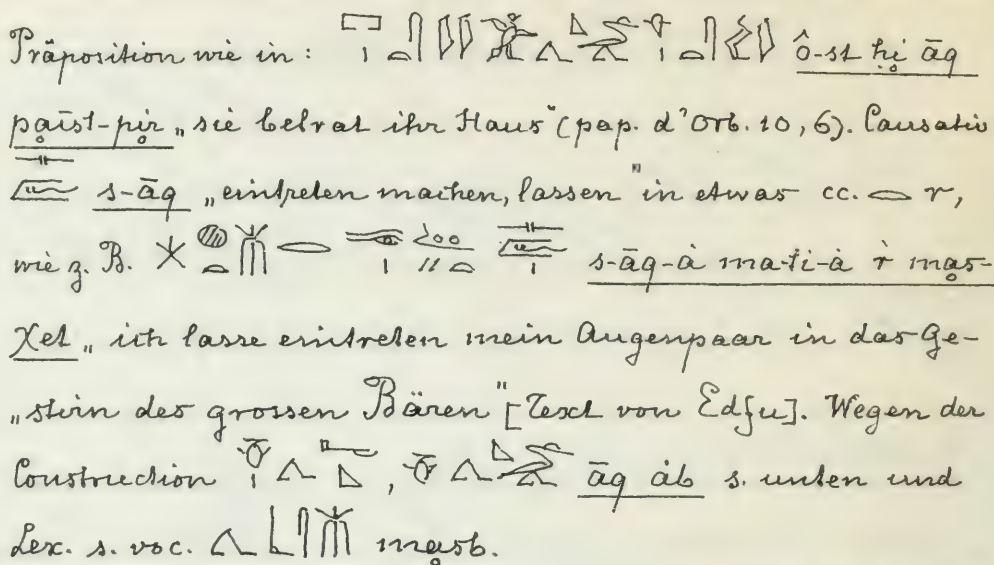 Präposition wie in: ô-st ḥi āq
paist-pir „sie betrat ihr Haus“ (pap. d'Orb. 10, 6). Causativ
s-āq „eintreten machen, lassen“ in etwas cc. 𓂋 r,
wie z. B. s-āq-à ma-ti-à r mas-
χet „ich lasse eintreten mein Augenpaar in das Ge-
„stirn des grossen Bären“ [Text von Edfu]. Wegen der
Construction , āq àb s. unten und
Lex. s. voc. masb.